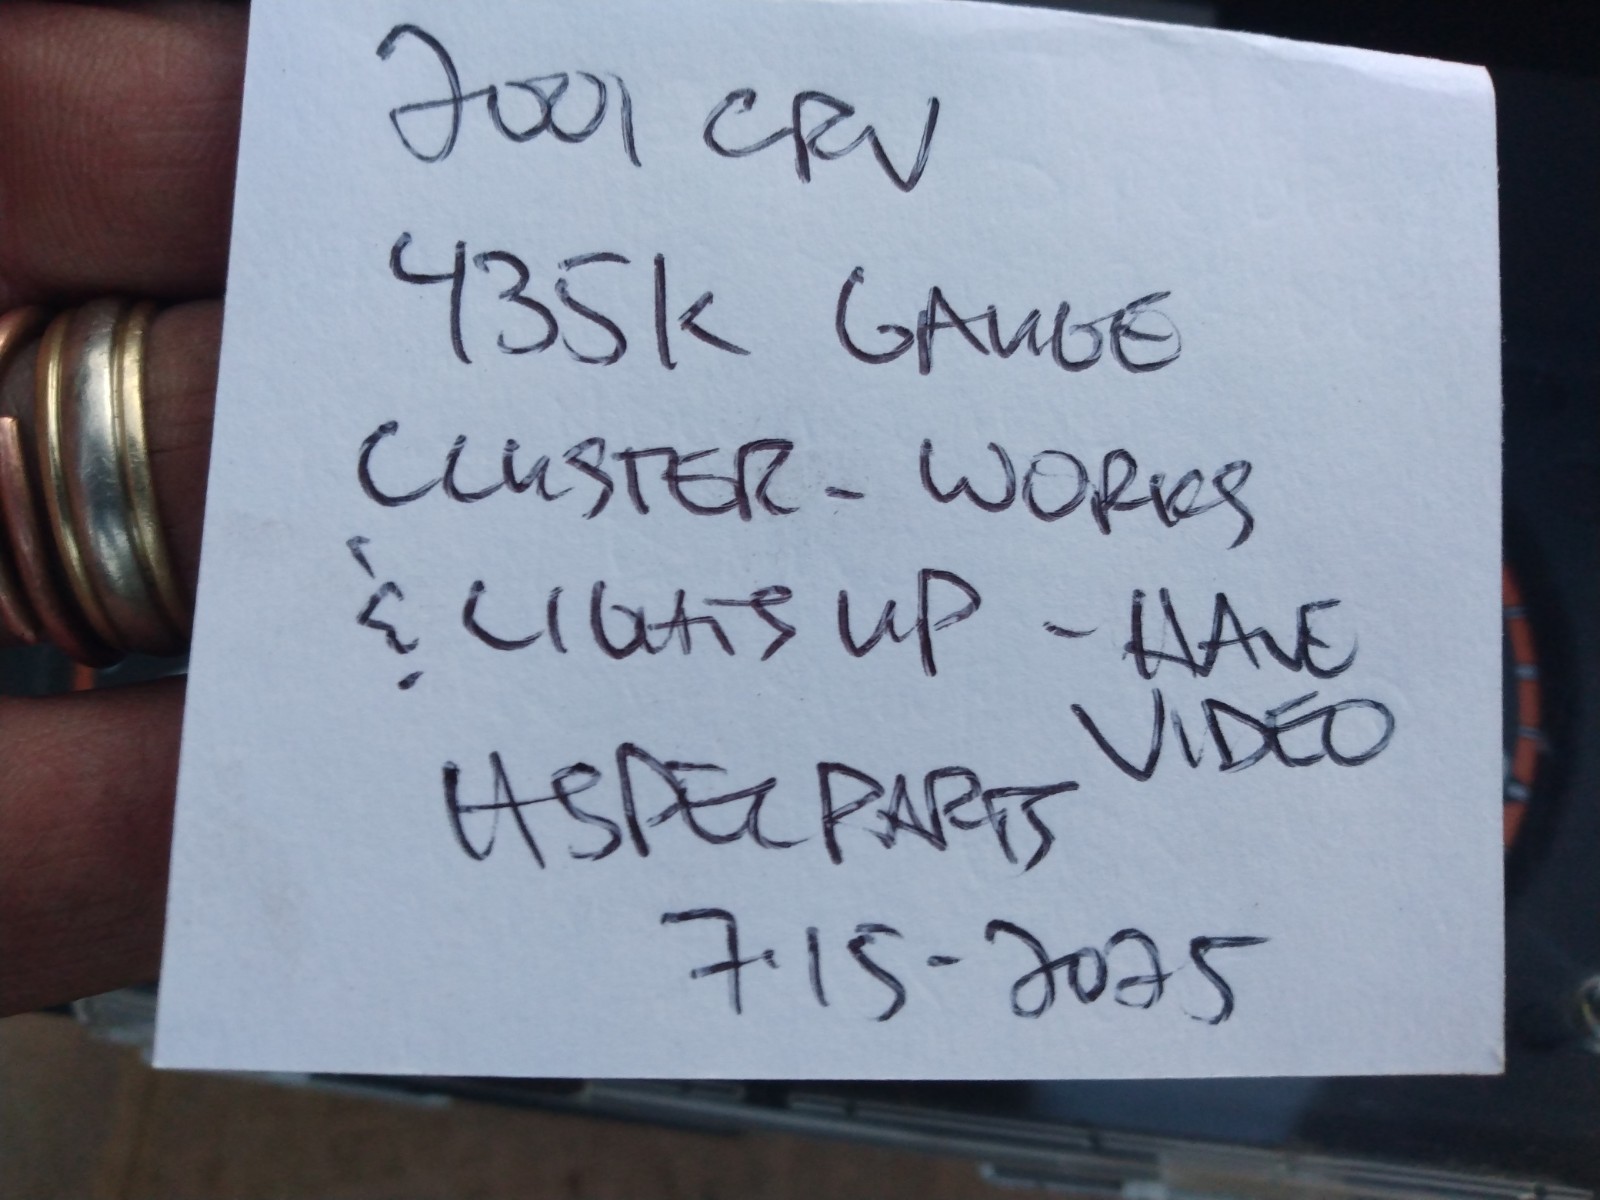 2001 CRV
435K GAUGE
CLUSTER - WORKS
& LIGHTS UP - HAVE
VIDEO
HSPECPARTS
7-15-2025